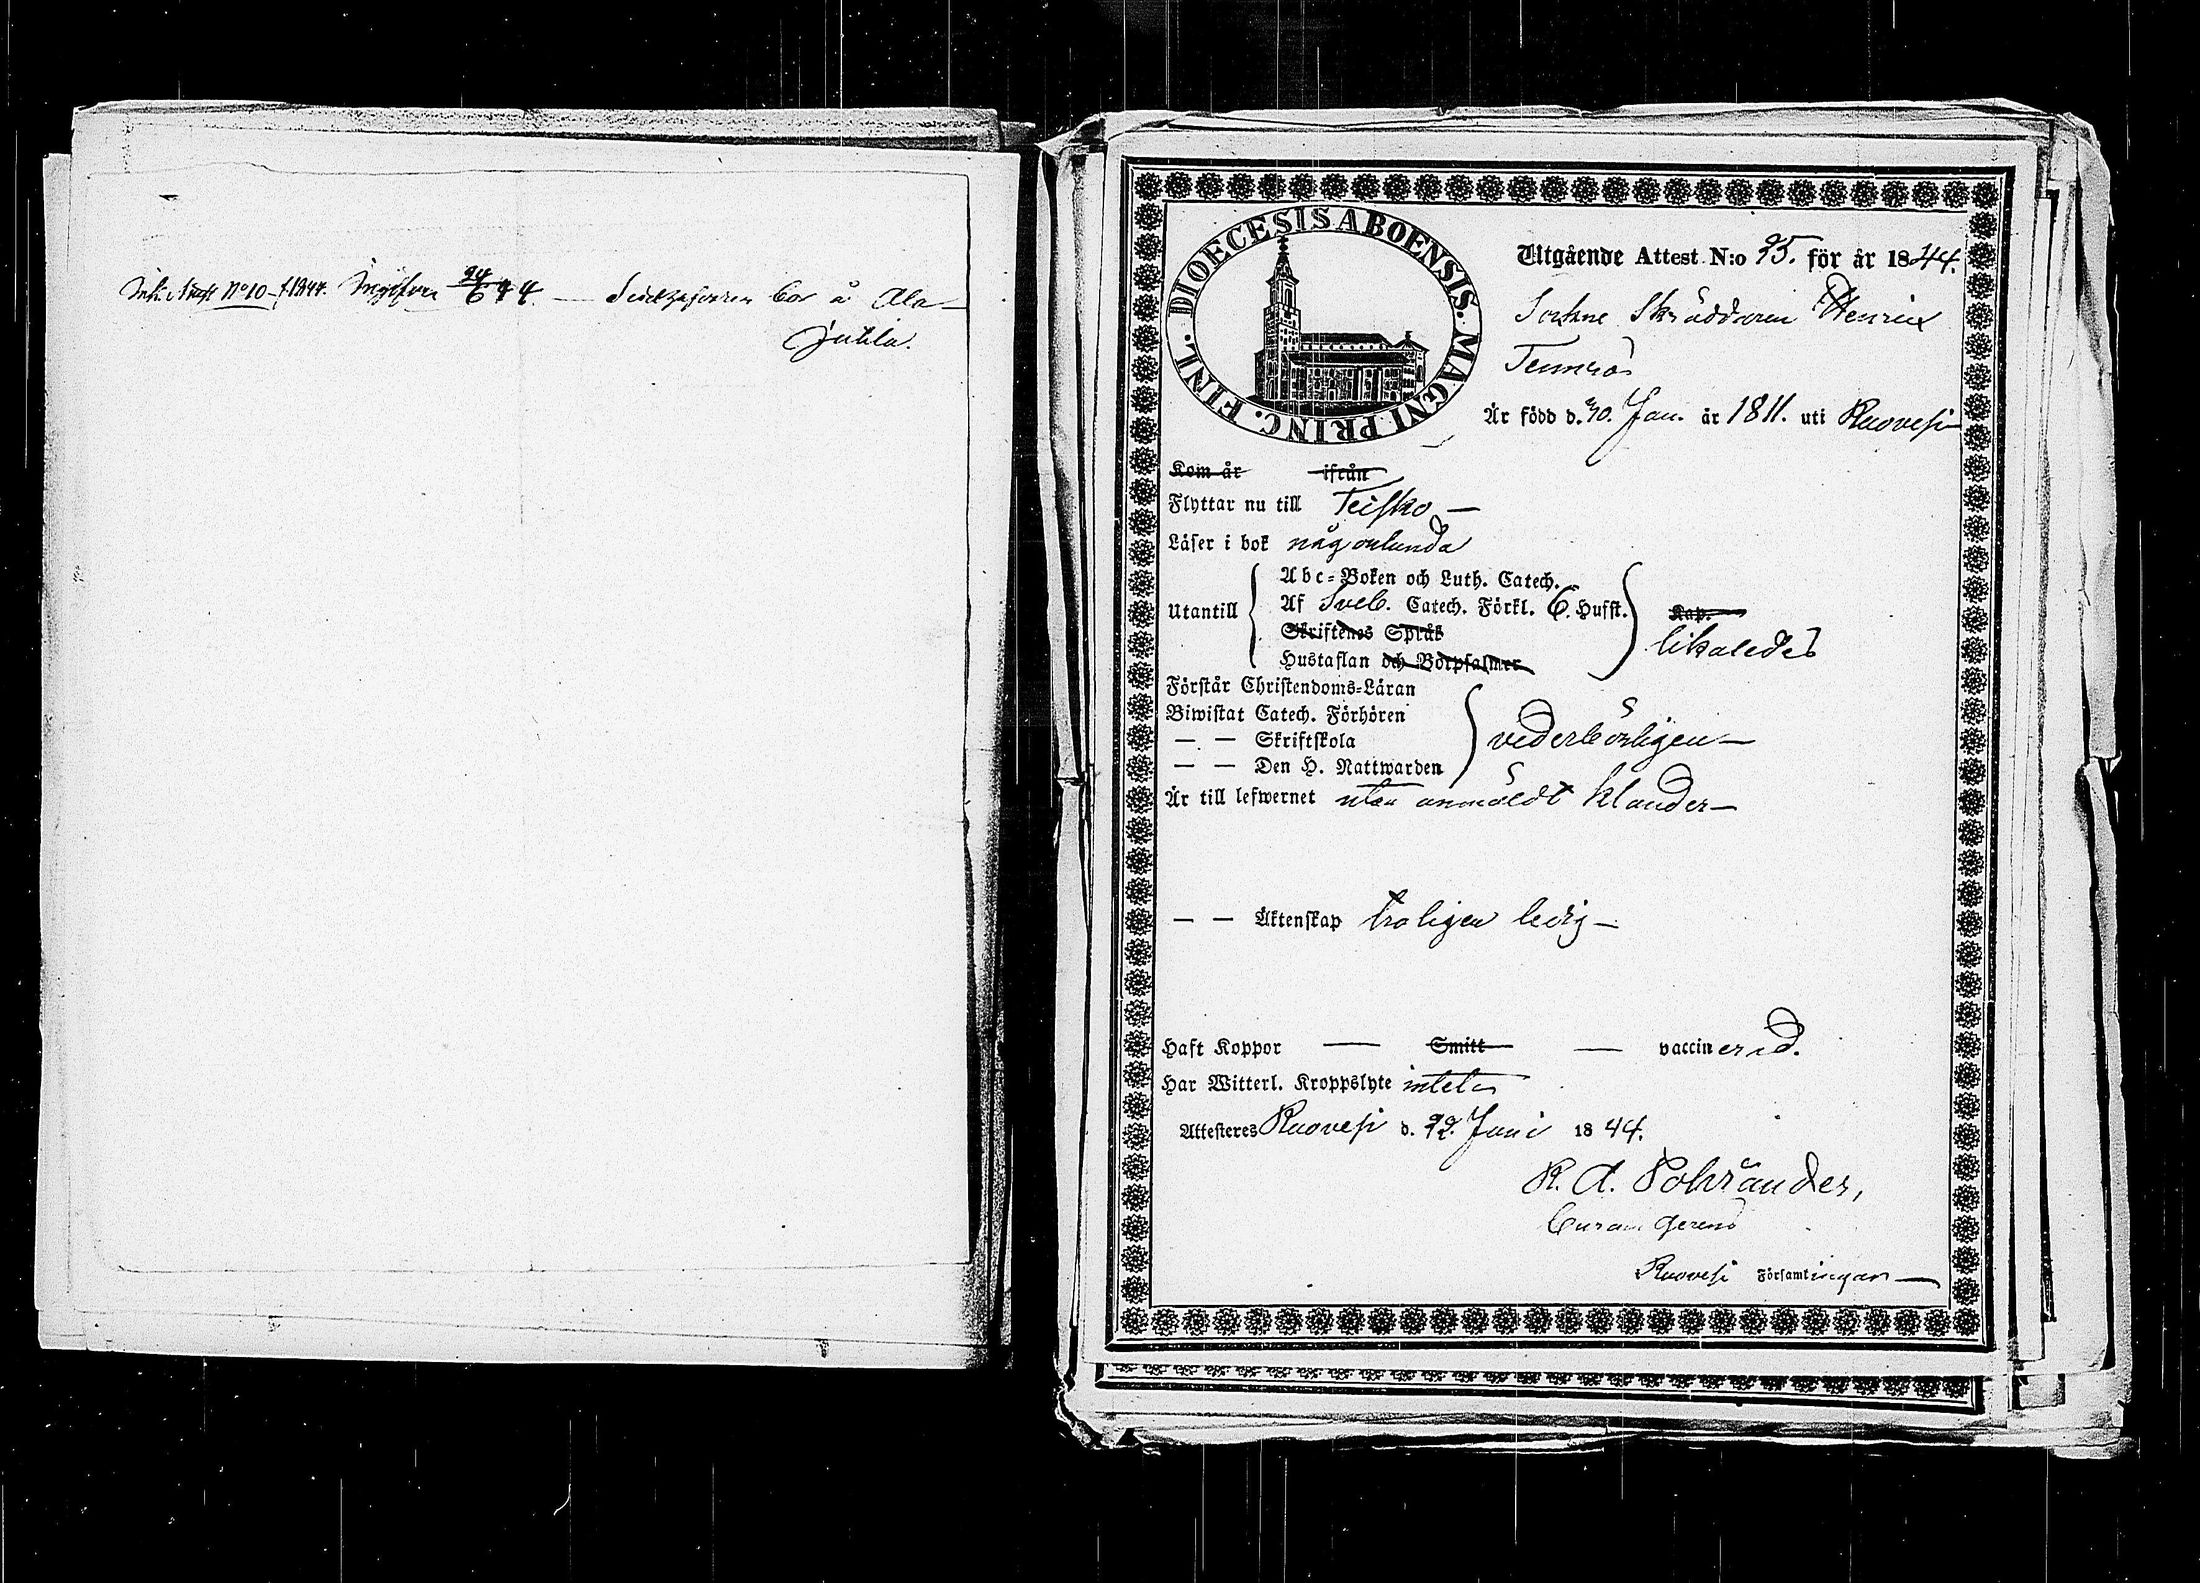 Ink. Attest No 10 f. 1844. Ingifven 24/6 44. — Inhysesfarren bor å Ala-
Juhla.
DIOECESIS ABOENSIS. MAGNI PRINC. FINL.
Utgående Attest N:o 25. för år 1844.
Sockne Skräddaren Henric
Temnos
Är född d. 30. Jan. år 1811. uti Ruovesi
Kom år ifrån
Flyttar nu till Teisko —
Läser i bok någorlunda
Utantill
Abc-Boken och Luth. Catech.
Af Sveb. Catech. Förkl. 6. Hufst.
Skriftenes Språk
Hustaflan och Botpsalmer
Kap.
likaledes
Förstår Christendoms-Läran
Biwistat Catech. Förhören
— — Skriftskola
— — Den H. Nattwarden
vederbörligen —
Är till lefwernet utan anmäldt klander —
— — Äktenskap troligen ledig —
Haft Koppor — Smitt — vaccinerad.
Har Witterl. Kroppslyte intet
Attesteres Ruovesi d. 22. Juni 1844.
K. A. Pohränder,
Curam gerens
Ruovesi Församlingar —